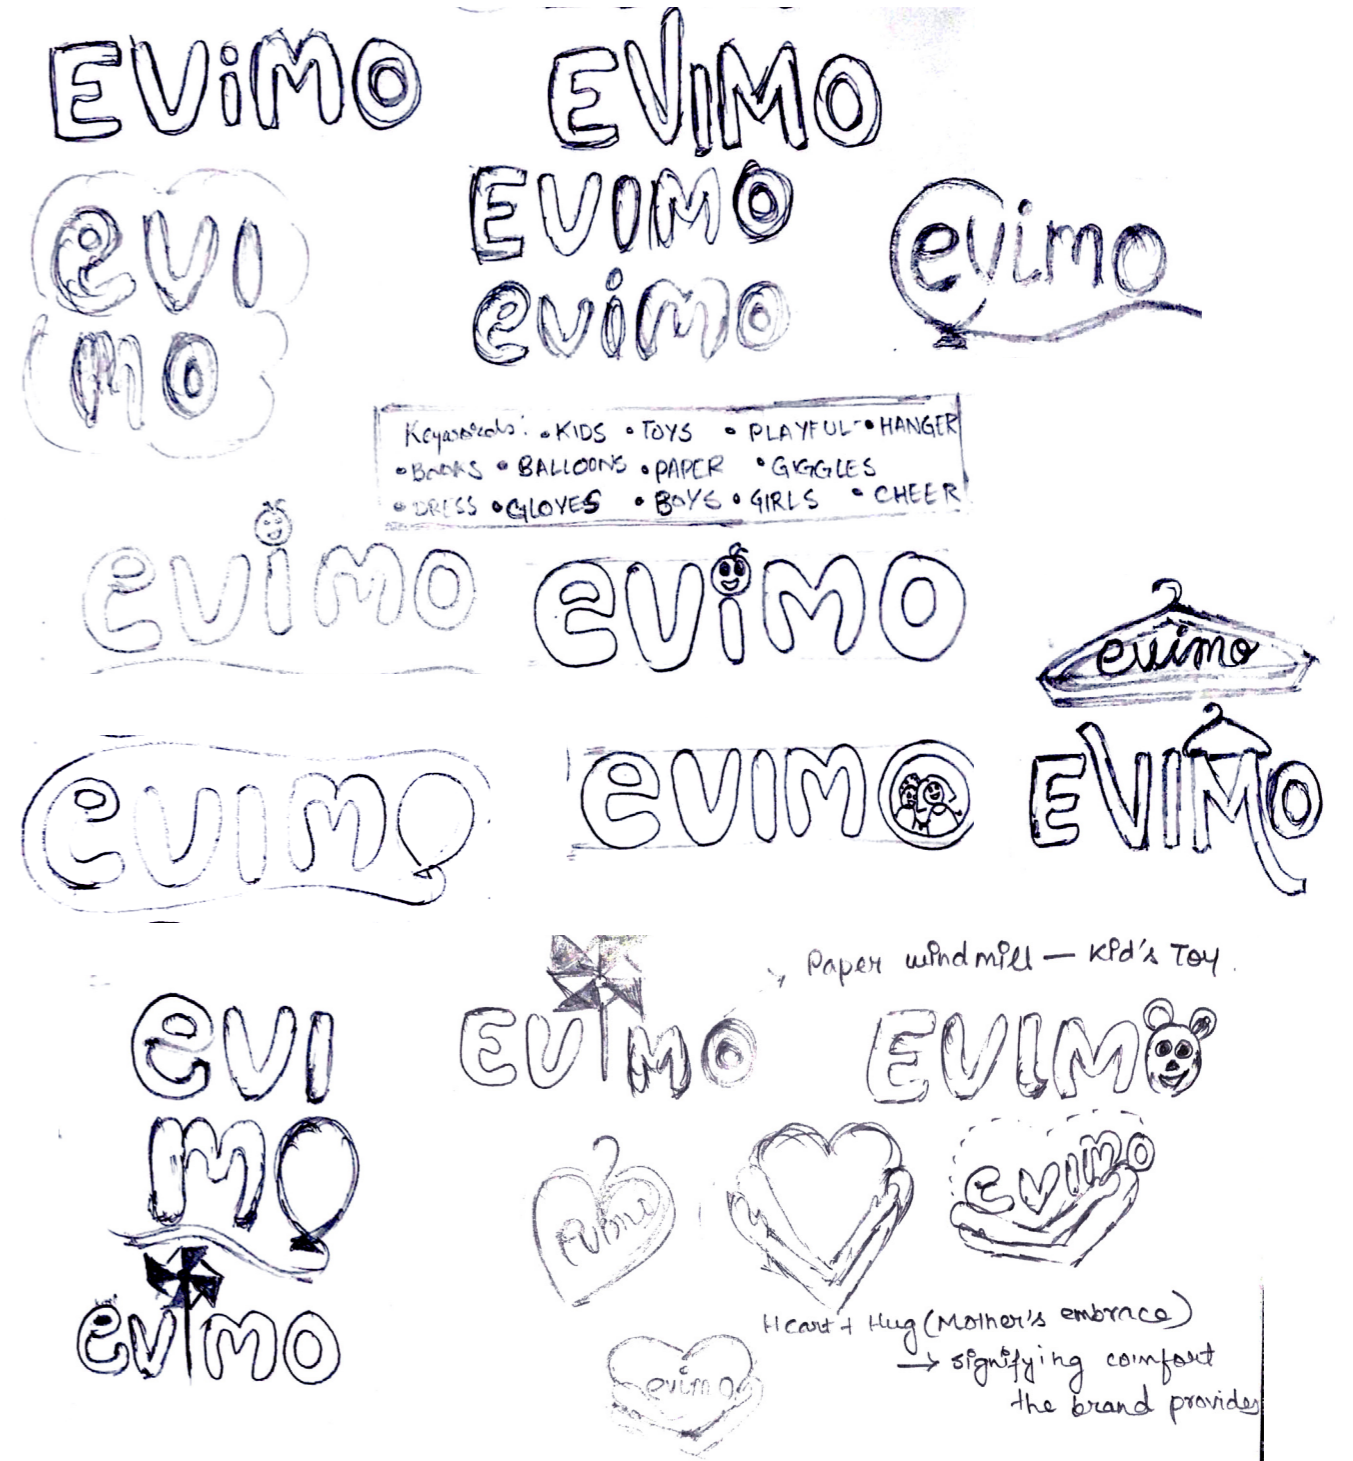 EViMO
EVIMO
EVIMO
evi
mo
evimo
evimo
Keywords: • KIDS • TOYS • PLAYFUL • HANGER
• BOOKS • BALLOONS • PAPER • GIGGLES
• DRESS • GLOVES • BOYS • GIRLS • CHEER
evimo
eviMO
evimo
EVIMO
evimo
eVIMO
Paper windmill — Kid's Toy.
evi
mo
EVIMO
EVIMO
evimo
evimo
Heart + Hug (Mother's embrace)
→ signifying comfort
the brand provides
evimo
evimo